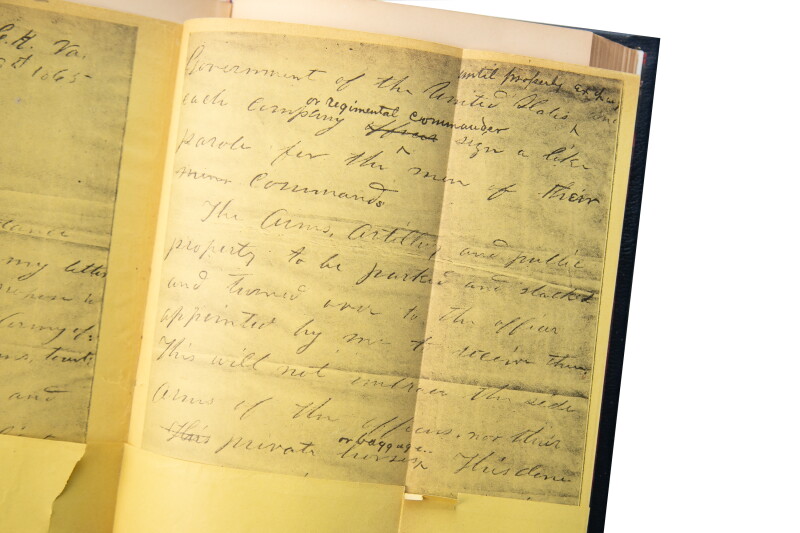 C.H. Va.
1865
my letter
Army of
and
until properly
Government of the United States
or regimental commander
each company officer sign a like
parole for the men of their
commands
The Arms, Artillery and public
property to be parked and stacked
and turned over to the officer
appointed by me to receive them.
This will not embrace the side
arms of the officers, nor their
or baggage.
This private horses This done